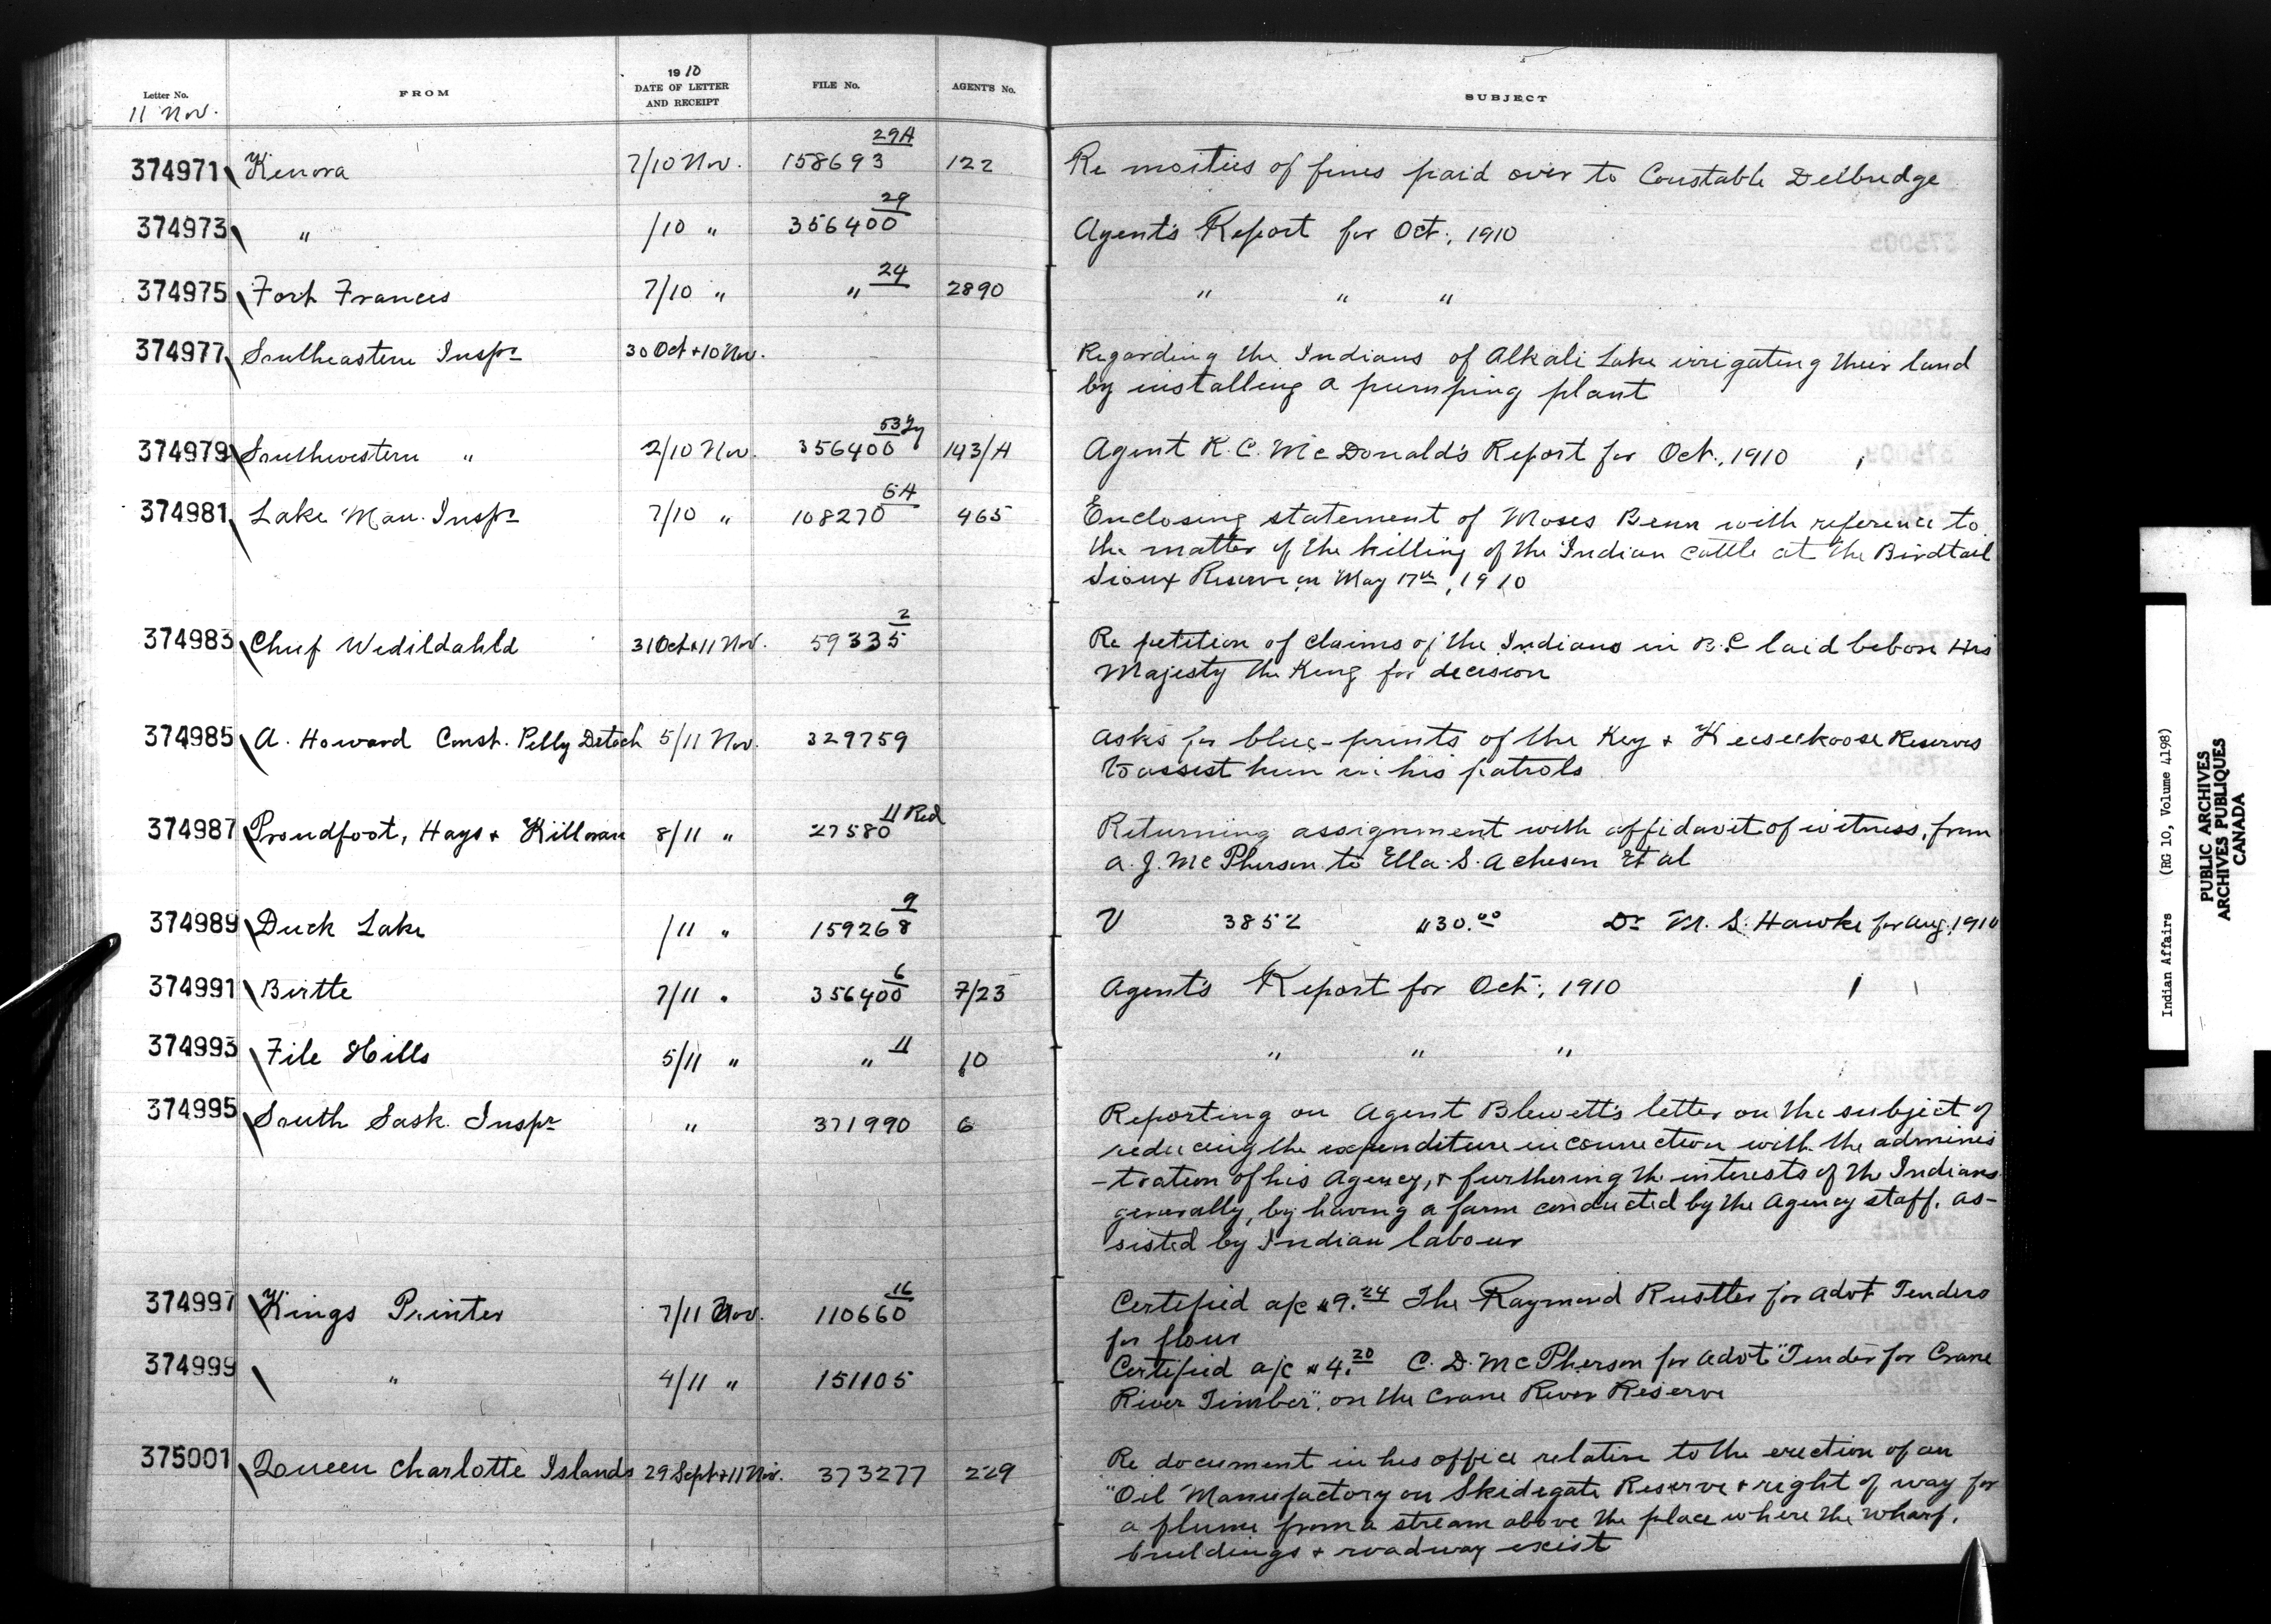 1910
Letter No. FROM DATE OF LETTER AND RECEIPT FILE No. AGENT'S No. SUBJECT
11 Nov.
374971 Kenora 7/10 Nov. 158693 29A 122 Re moities of fines paid over to Constable Delbridge
374973 " /10 " 356400 29 Agent's Report for Oct., 1910
374975 Fort Frances 7/10 " " 24 2890 " " "
374977 Southeastern Inspr 30 Oct + 10 Nov. Regarding the Indians of Alkali Lake irrigating their land
by installing a pumping plant
374979 Southwestern " 2/10 Nov. 356400 53 143/A Agent R. C. McDonald's Report for Oct., 1910
374981 Lake Man. Inspr 7/10 " 108270 6A 465 Enclosing statement of Moses Benn with reference to
the matter of the killing of the Indian cattle at the Birdtail
Sioux Reserve on May 17th, 1910
374983 Chief Wedildahld 31 Oct + 11 Nov. 59335 2 Re petition of claims of the Indians in B.C laid before His
Majesty the King for decision
374985 A. Howard Const. Pelly Detach 5/11 Nov. 329759 Asks for blue-prints of the Key + Keeseekoose Reserves
to assist him in his patrols
374987 Proudfoot, Hays + Killoran 8/11 " 27580 11 Red Returning assignment with affidavit of witness, from
A. J. McPherson to Ella S. Acheson Et al
374989 Duck Lake /11 " 159268 9 V 3852 $30.00 Dr M. S. Hawke for Aug. 1910
374991 Birtle 7/11 " 356400 6 7/23 Agent's Report for Oct., 1910
374993 File Hills 5/11 " " 11 10 " " "
374995 South Sask. Inspr " 371990 6 Reporting on Agent Blewett's letter on the subject of
reducing the expenditure in connection with the adminis
-tration of his Agency, + furthering the interests of the Indians
generally, by having a farm conducted by the Agency staff, as-
sisted by Indian labour
374997 Kings Printer 7/11 Nov. 110660 16 Certified a/c $9.24 The Raymond Rustler for Advt Tenders
for flour
374999 " 4/11 " 151105 Certified a/c $4.20 C. D. McPherson for Advt "Tender for Crane
River Timber", on the Crane River Reserve
375001 Queen Charlotte Islands 29 Sept + 11 Nov. 373277 229 Re document in his office relative to the erection of an
"Oil Manufactory on Skidegate Reserve + right of way for
a flume from a stream above the place where the wharf,
buildings + roadway exist
Indian Affairs (RG 10, Volume 4198)
PUBLIC ARCHIVES
ARCHIVES PUBLIQUES
CANADA